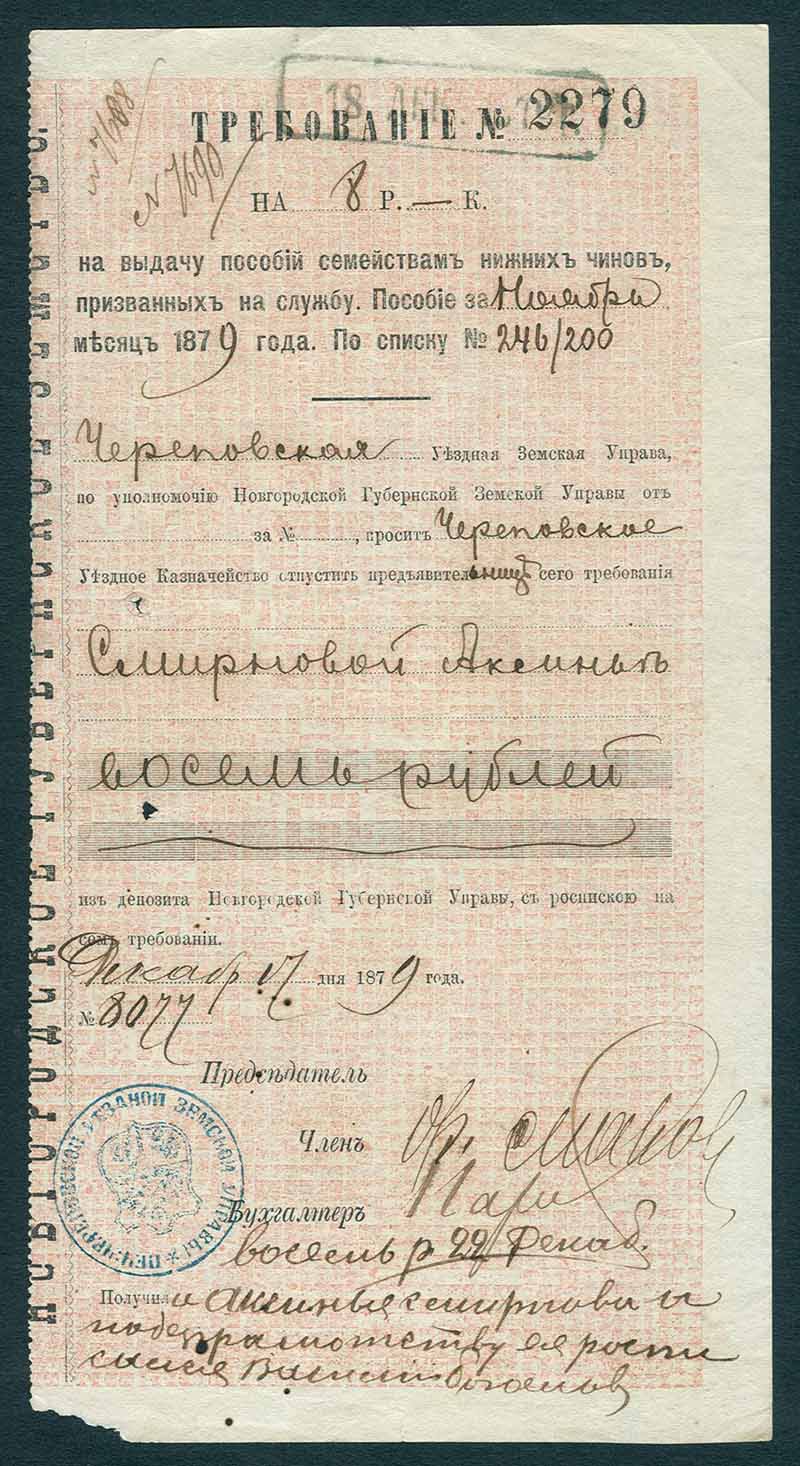 ТРЕБОВАНІЕ № 2279
N 7688
N 7690
НА 8 Р. — К.
на выдачу пособій семействамъ нижнихъ чиновъ,
призванныхъ на службу. Пособіе за Ноябрь
мѣсяцъ 1879 года. По списку № 246/200
Череповская Уѣздная Земская Управа,
по уполномочію Новгородской Губернской Земской Управы отъ
за № , проситъ Череповское
Уѣздное Казначейство отпустить предъявительницѣ сего требованія
Смирновой Аксиньѣ
восемь рублей
изъ депозита Новгородской Губернской Управы, съ роспискою на
семъ требованіи.
Декабр 17 дня 1879 года.
№ 8077
Предсѣдатель
Членъ
Бухгалтеръ
восемь р 22 Декаб.
Получила Аксинья Смирнова и
по безграмотству ея роспи
сался
НОВГОРОДСКОЕ ГУБЕРНСКОЕ ЗЕМСТВО.
ПЕЧ. ЧЕРЕПОВСКОЙ УѢЗДНОЙ ЗЕМСКОЙ УПРАВЫ